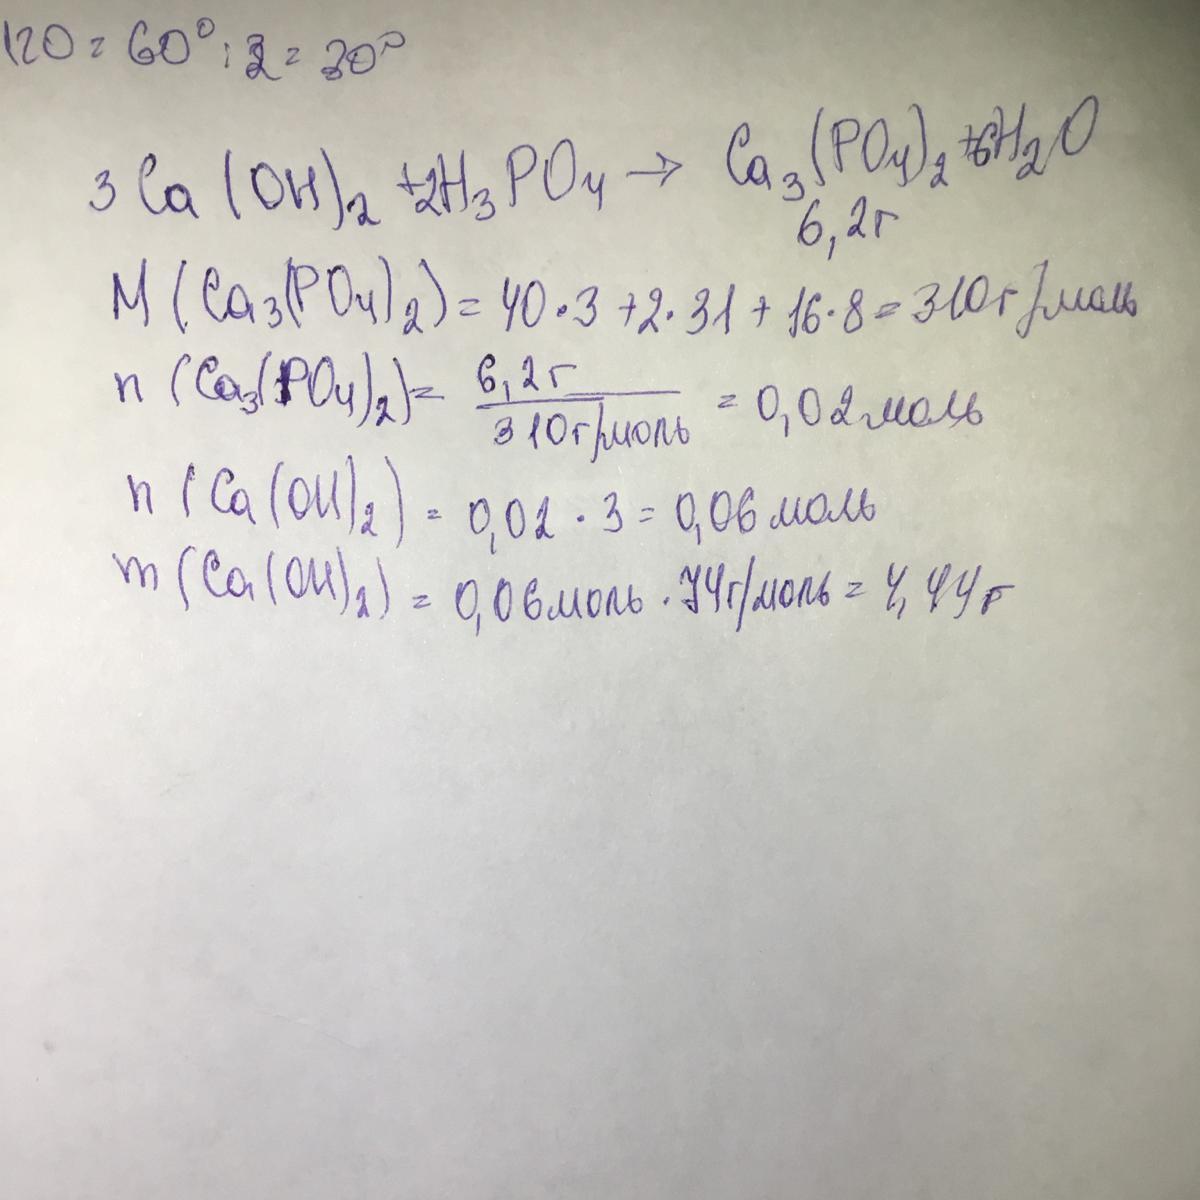 120 = 60° : 2 = 30°
3Ca(OH)₂ + 2H₃PO₄ → Ca₃(PO₄)₂ + 6H₂O
6,2г
M(Ca₃(PO₄)₂) = 40·3 + 2·31 + 16·8 = 310г/моль
n(Ca₃(PO₄)₂) = 6,2г / 310г/моль = 0,02моль
n(Ca(OH)₂) = 0,02 · 3 = 0,06моль
m(Ca(OH)₂) = 0,06моль · 74г/моль = 4,44г